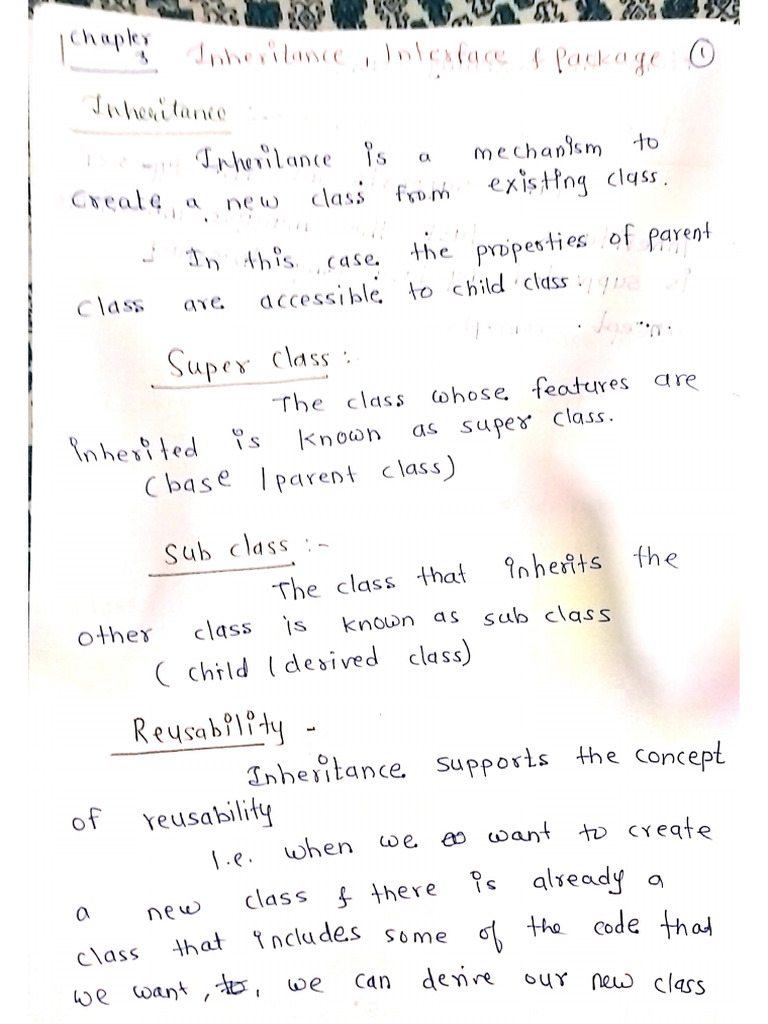 Chapter
3
Inheritance, Interface & Package
1
Inheritance
Inheritance is a mechanism to
create a new class from existing class.
- In this case the properties of parent
class are accessible to child class
Super Class :
The class whose features are
inherited is known as super class.
(base / parent class)
Sub class :-
The class that inherits the
other class is known as sub class
( child / derived class)
Reusability -
Inheritance supports the concept
of reusability
I.e. when we want to create
a new class & there is already a
class that includes some of the code that
we want, to, we can derive our new class